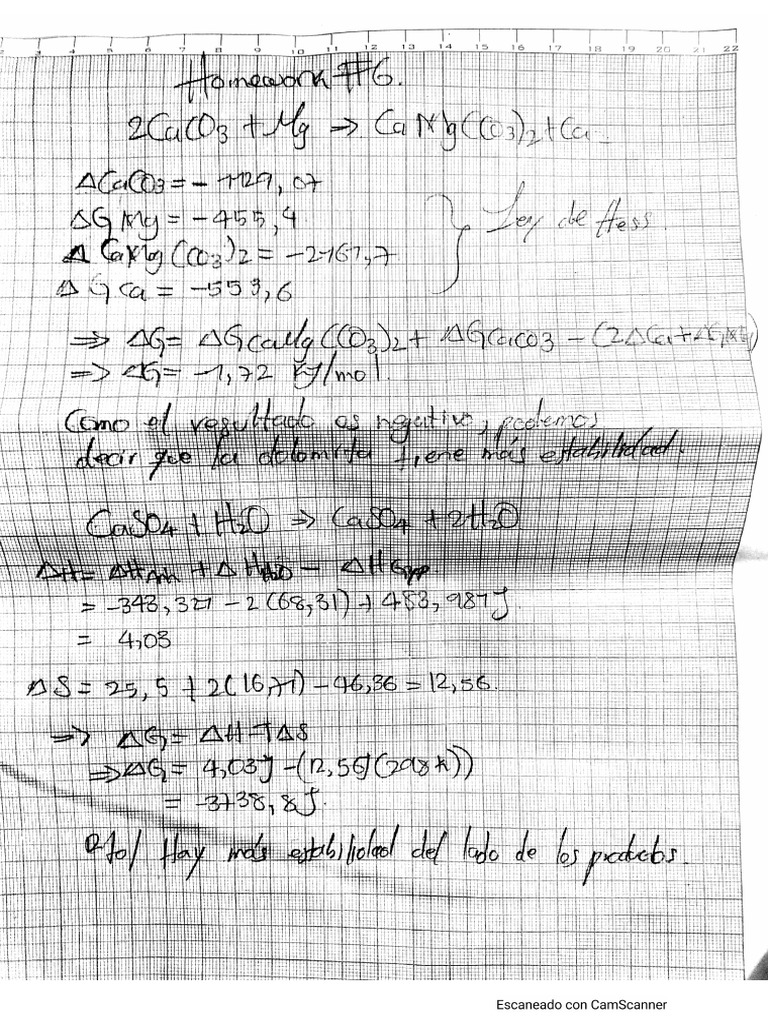 2 3 4 5 6 7 8 9 10 11 12 13 14 15 16 17 18 19 20 21 22
Homework #6.
2CaCO3 + Mg ⇒ CaMg(CO3)2 + Ca
ΔCaCO3 = -1129,07
ΔG Mg = -455,4
Ley de Hess.
Δ CaMg(CO3)2 = -2161,7
Δ G Ca = -553,6
⇒ ΔG = ΔG CaMg(CO3)2 + ΔG CaCO3 - (2ΔCa + ΔG Mg)
⇒ ΔG = -1,72 kJ/mol.
Como el resultado es negativo, podemos
decir que la dolomita tiene más estabilidad.
CaSO4 + H2O ⇒ CaSO4 + 2H2O
ΔH = ΔHAnh + ΔH H2O - ΔH Gyp
= -343,321 - 2(68,31) + 483,981J.
= 4,03
ΔS = 25,5 + 2(16,71) - 46,36 = 12,56.
⇒ ΔG = ΔH - TΔS
⇒ ΔG = 4,03J - (12,56J(298K))
= -3738,8J.
Rto/ Hay más estabilidad del lado de los productos.
Escaneado con CamScanner